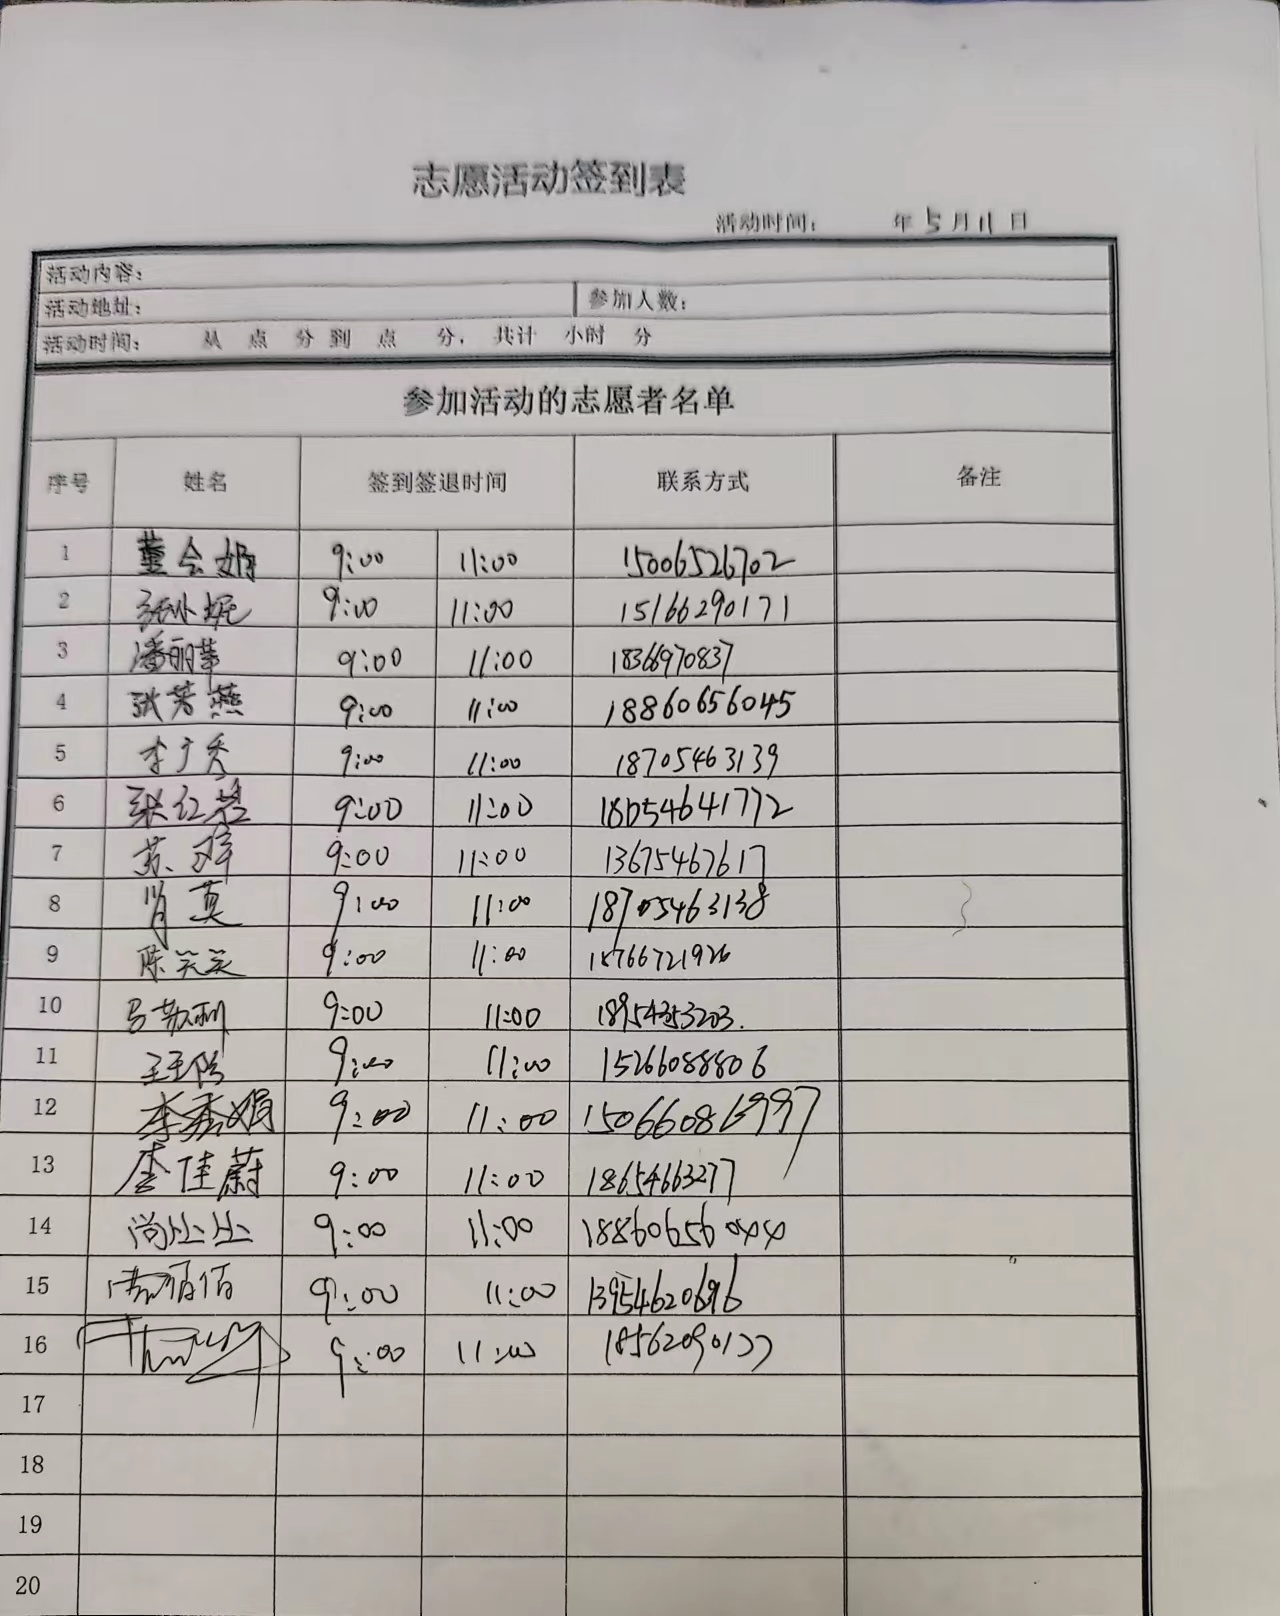 志愿活动签到表
活动时间： 年 5 月 11 日
活动内容：
活动地址： 参加人数：
活动时间： 从 点 分 到 点 分，共计 小时 分
参加活动的志愿者名单
序号 姓名 签到签退时间 联系方式 备注
1 董会娟 9:00 11:00 15006526702
2 张小妮 9:00 11:00 15166290171
3 潘丽华 9:00 11:00 1836970837
4 张芳燕 9:00 11:00 18860656045
5 李广秀 9:00 11:00 18705463139
6 张红 9:00 11:00 18054641772
7 苏 9:00 11:00 13675467617
8 肖莫 9:00 11:00 18705463138
9 陈笑笑 9:00 11:00 15766721926
10 马苏利 9:00 11:00 18954353203.
11 9:00 11:00 15266088806
12 李秀娟 9:00 11:00 15066086997
13 李佳蔚 9:00 11:00 18654663277
14 尚丛丛 9:00 11:00 18860656044
15 9:00 11:00 13954620696
16 9:00 11:00
17
18
19
20